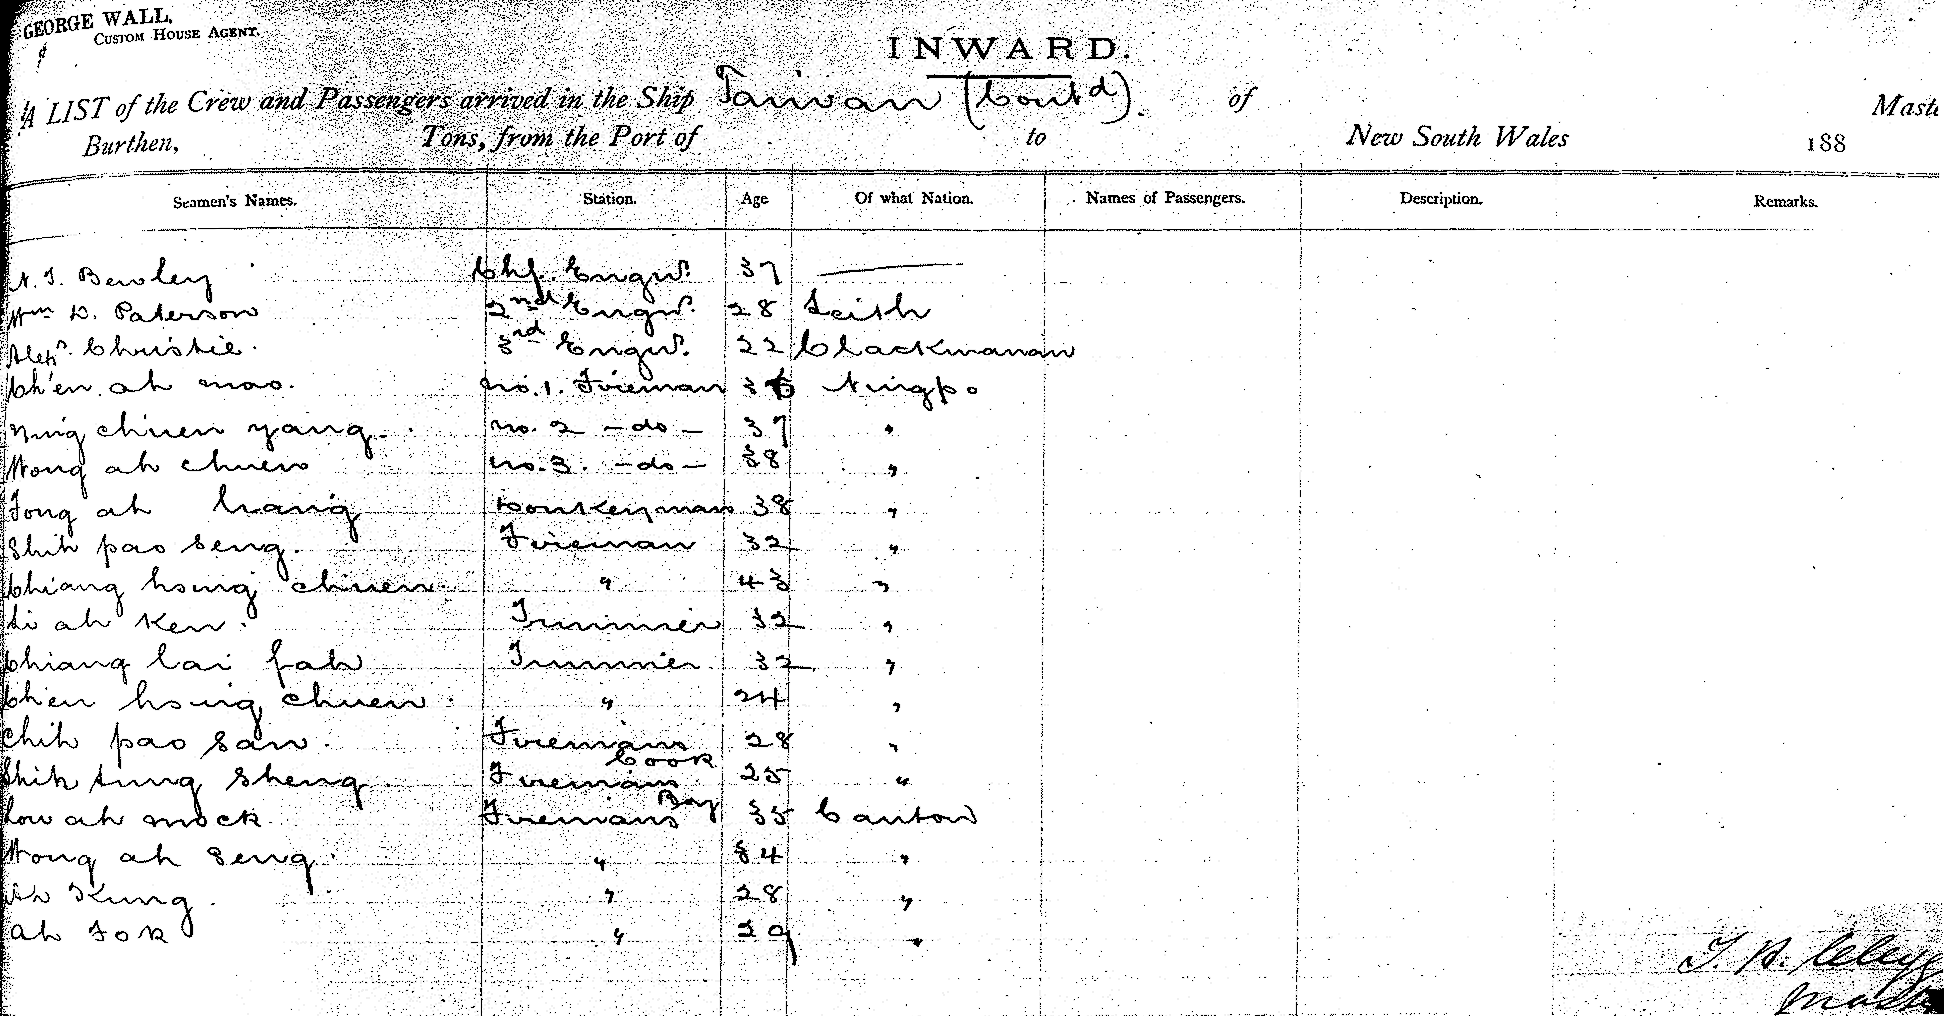 GEORGE WALL,
CUSTOM HOUSE AGENT.
INWARD.
A LIST of the Crew and Passengers arrived in the Ship Taiwan (Contd). of Maste
Burthen, Tons, from the Port of to New South Wales 188
Seamen's Names. Station. Age Of what Nation. Names of Passengers. Description. Remarks.
N. J. Bewley Chf. Engnr. 37 —
Wm D. Paterson 2nd Engnr. 28 Leith
Alexr. Christie. 3rd Engnr. 22 Clackmanan
Ch'en ah mao. no. 1. Fireman 36 Ningpo
Ning chuen yang. no. 2 -do- 37 "
Wong ah chuen no. 3. -do- 38 "
Tong ah hang Donkeyman 38 "
Shih pao seng. Fireman 32 "
Chiang hsing chuen " 43 "
Li ah Ken. Trimmer 32 "
Chiang lai fah Trimmer 32 "
Chen hsing chuen " 24 "
Chih pao san. Firemans Cook 28 "
Shih tung Sheng Firemans Boy 25 "
Low ah mock Firemans 35 Canton
Wong ah Seng " 34 "
Ah Kung. " 28 "
Ah Fok " 29 "
T. A.
Mast